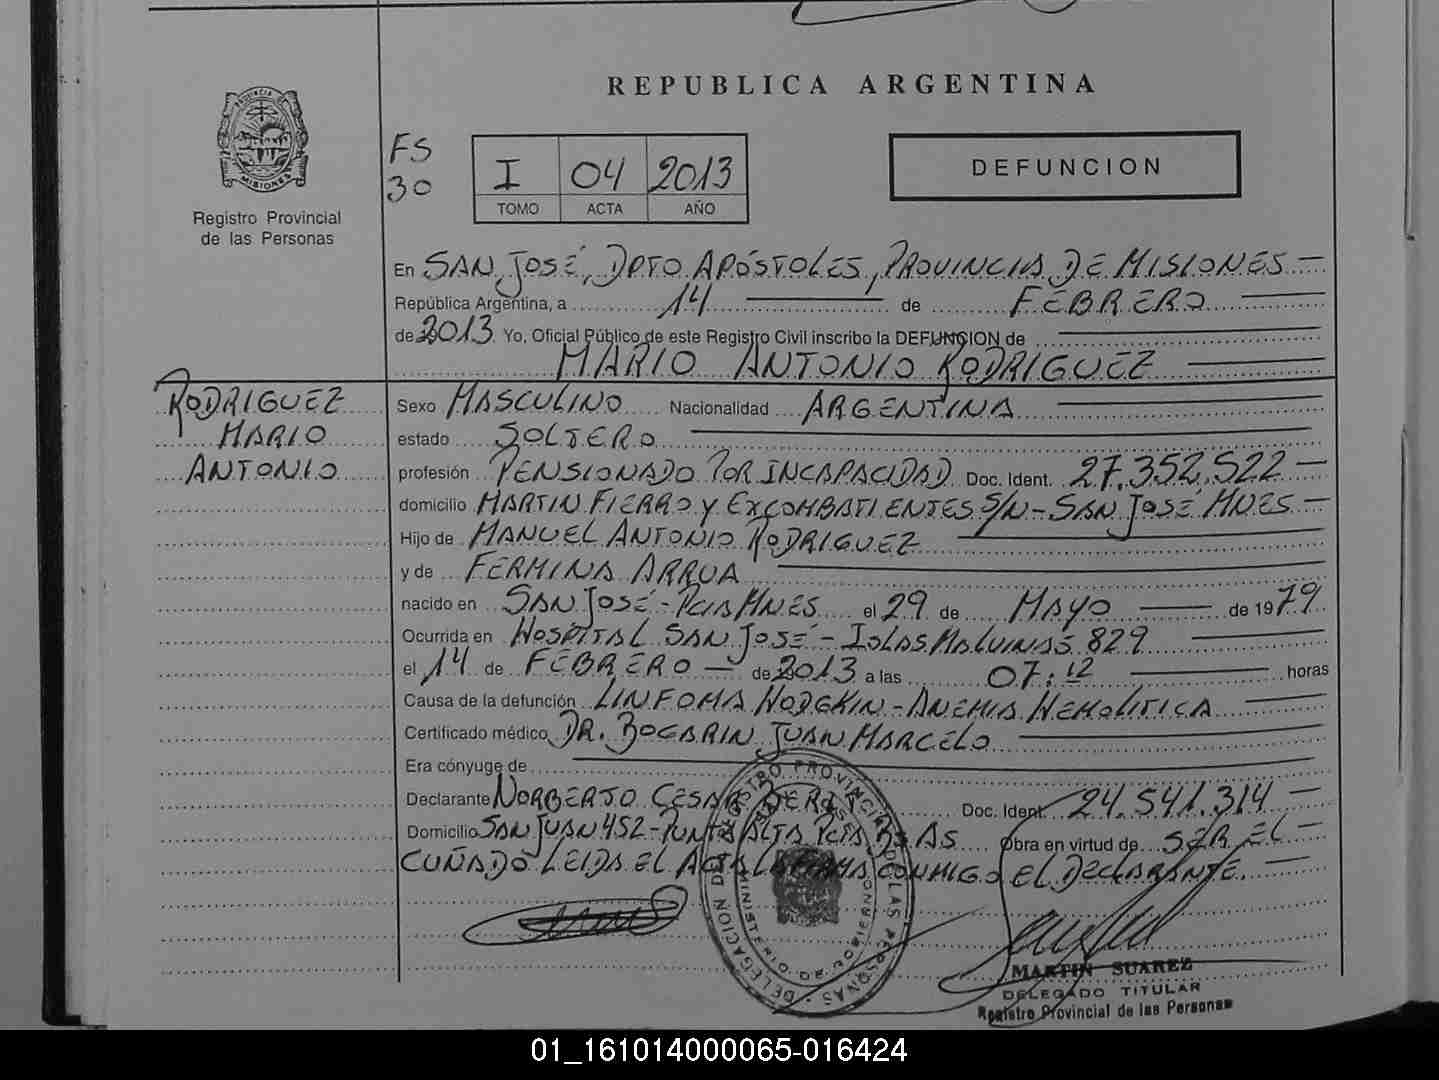 REPUBLICA ARGENTINA
PROVINCIA
MISIONES
Registro Provincial
de las Personas
FS
30
I 04 2013
TOMO ACTA AÑO
DEFUNCION
En SAN JOSÉ, DPTO APÓSTOLES, PROVINCIA DE MISIONES
República Argentina, a 14 de FEBRERO
de 2013 Yo, Oficial Público de este Registro Civil inscribo la DEFUNCION de
MARIO ANTONIO RODRIGUEZ
RODRIGUEZ
MARIO
ANTONIO
Sexo MASCULINO Nacionalidad ARGENTINA
estado SOLTERO
profesión PENSIONADO POR INCAPACIDAD Doc. Ident. 27.352.522
domicilio MARTIN FIERRO Y EXCOMBATIENTES S/N - SAN JOSÉ MNES
Hijo de MANUEL ANTONIO RODRIGUEZ
y de FERMINA ARRUA
nacido en SAN JOSÉ - PCIA MNES el 29 de MAYO de 1979
Ocurrida en HOSPITAL SAN JOSÉ - ISLAS MALVINAS 829
el 14 de FEBRERO de 2013 a las 07:12 horas
Causa de la defunción LINFOMA HODGKIN - ANEMIA HEMOLITICA
Certificado médico DR. BOGARIN JUAN MARCELO
Era cónyuge de
Declarante NORBERTO CESAR Doc. Ident. 24.541.314
Domicilio SAN JUAN 452 - PUNTA ALTA PCIA BS AS Obra en virtud de SER EL
CUÑADO LEIDA EL ACTA LA FIRMA CONMIGO EL DECLARANTE.
DELEGACION DEL REGISTRO PROVINCIAL DE LAS PERSONAS
MINISTERIO DE GOBIERNO
MARTIN SUAREZ
DELEGADO TITULAR
Registro Provincial de las Personas
01_161014000065-016424